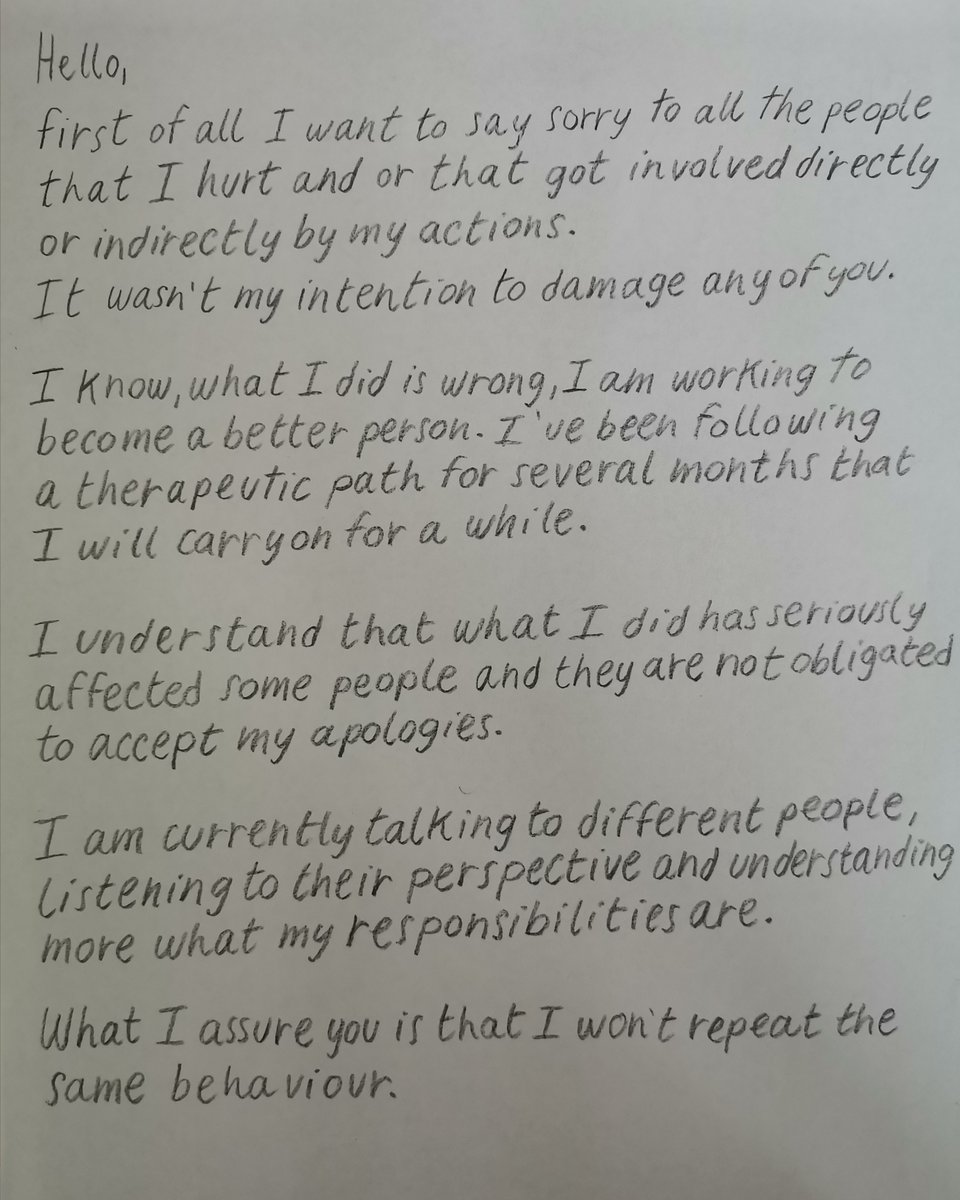 Hello,
first of all I want to say sorry to all the people
that I hurt and or that got involved directly
or indirectly by my actions.
It wasn't my intention to damage any of you.
I know, what I did is wrong, I am working to
become a better person. I've been following
a therapeutic path for several months that
I will carry on for a while.
I understand that what I did has seriously
affected some people and they are not obligated
to accept my apologies.
I am currently talking to different people,
listening to their perspective and understanding
more what my responsibilities are.
What I assure you is that I won't repeat the
same behaviour.